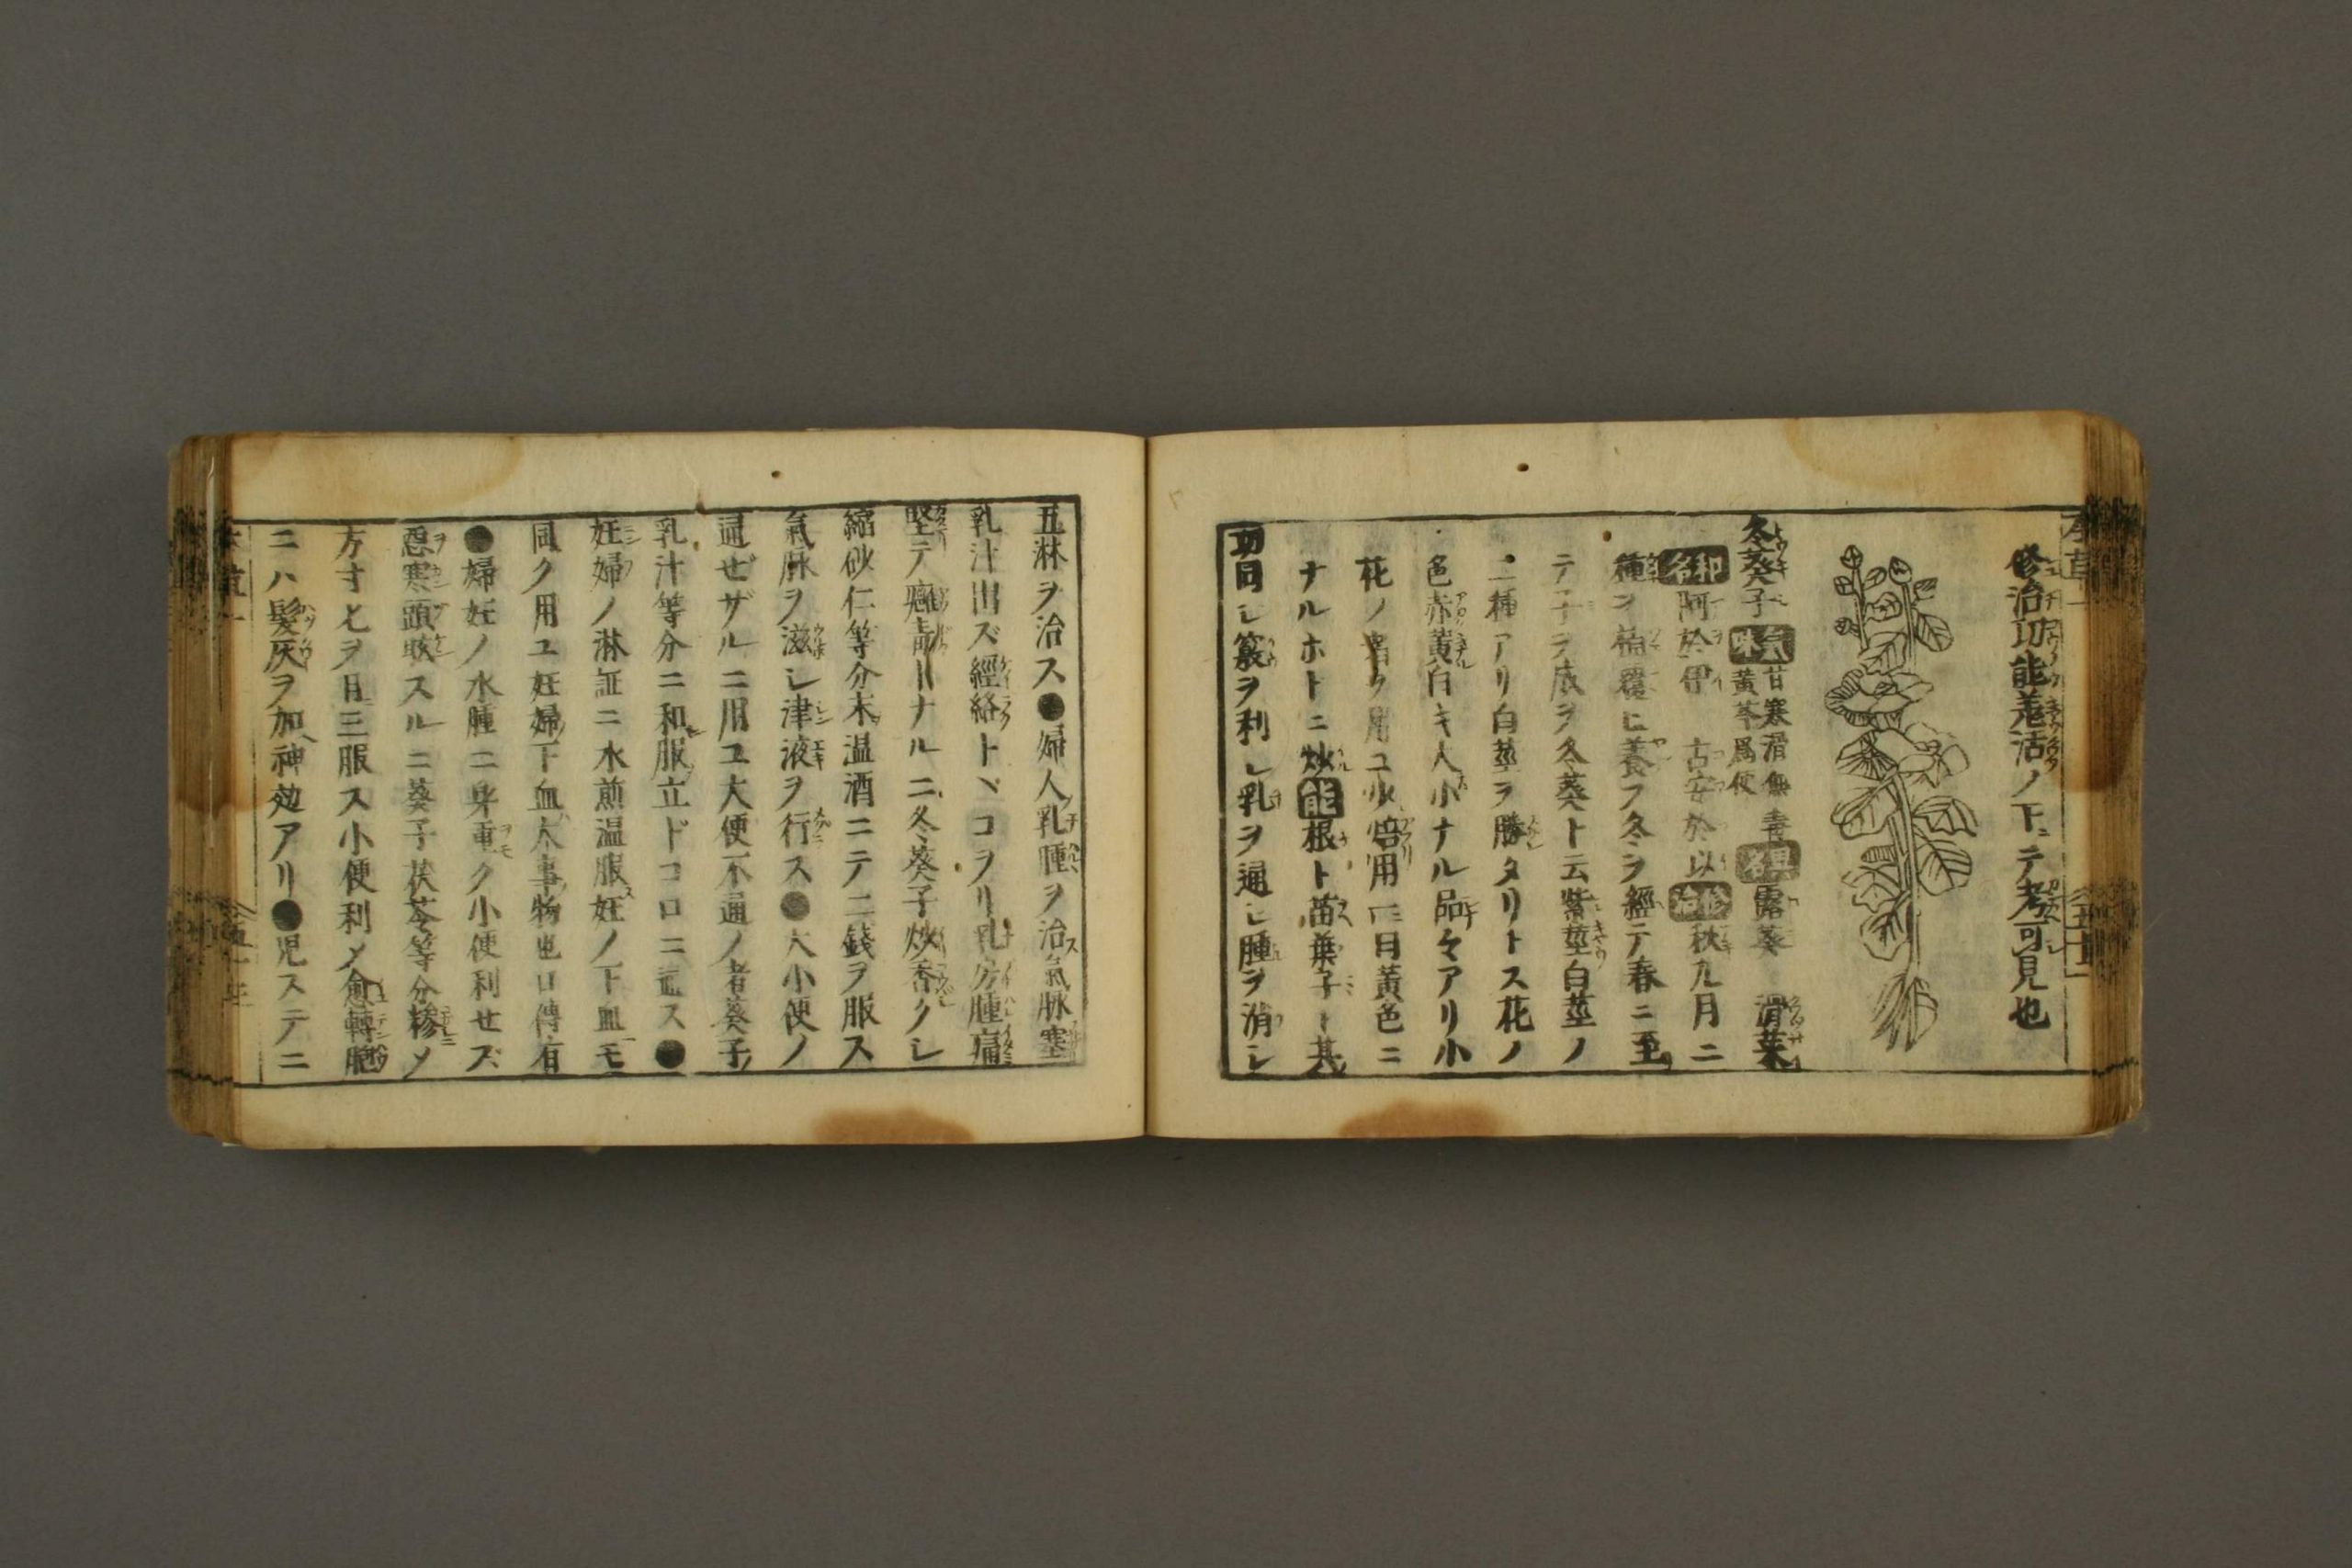 修治功能羗活ノ下ニテ考可見也
冬葵子 気味 甘寒滑無毒 黄芩爲使 異名 露葵 滑菜
和名 阿於伊 古安於以 修治 秋九月ニ
種ヲ 覆ヒ養フ冬ヲ經テ春ニ至
テ子ヲ 冬葵ト云紫莖白莖ノ
二種アリ白莖ヲ勝タリトス花ノ
色赤黄白キ大小ナル品々アリ小
花ノ者ク用ユ火焙用 黄色ニ
ナルホトニ炒 能 根ト苗葉子ト其
功同シ竅ヲ利シ乳ヲ通シ腫ヲ消シ
五淋ヲ治ス●婦人乳腫ヲ治ス氣脉塞
乳汁出ズ經絡トヾコヲリ乳房腫痛
堅テ癰毒トナルニ冬葵子炒香クシ
縮砂仁等分末温酒ニテ二錢ヲ服ス
氣脉ヲ滋シ津液ヲ行ス●大小便ノ
通ゼザルニ用ユ大便不通ノ者葵子
乳汁等分ニ和服立ドコロニ通ス●
妊婦ノ淋証ニ水煎温服ス妊ノ下血モ
同ク用ユ妊婦下血大事物也口傳有
●婦妊ノ水腫ニ身重ク小便利せズ
惡寒頭眩スルニ葵子茯苓等分糝メ
方寸匕ヲ日三服ス小便利メ愈轉胞
ニハ髮灰ヲ加神効アリ●児ステニ